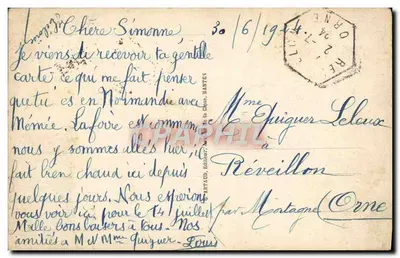 Chère Simonne
30/6/19
Je viens de recevoir ta gentille
carte e qui me fait penser
que tu es en Normandie avec
Mémée. La foire est commen
nous y sommes allés hier, il
fait bien chaud ici depuis
quelques jours. Nous espérons
vous voir ici pour le 14 juillet
Mille bons baisers à tous. Nos
amitiés à M N Mme Quiguer.
Mme Quiguer Leleux
à
Réveillon
par Mortagne (Orne
ORNE
CARTPASCAL
NANTES